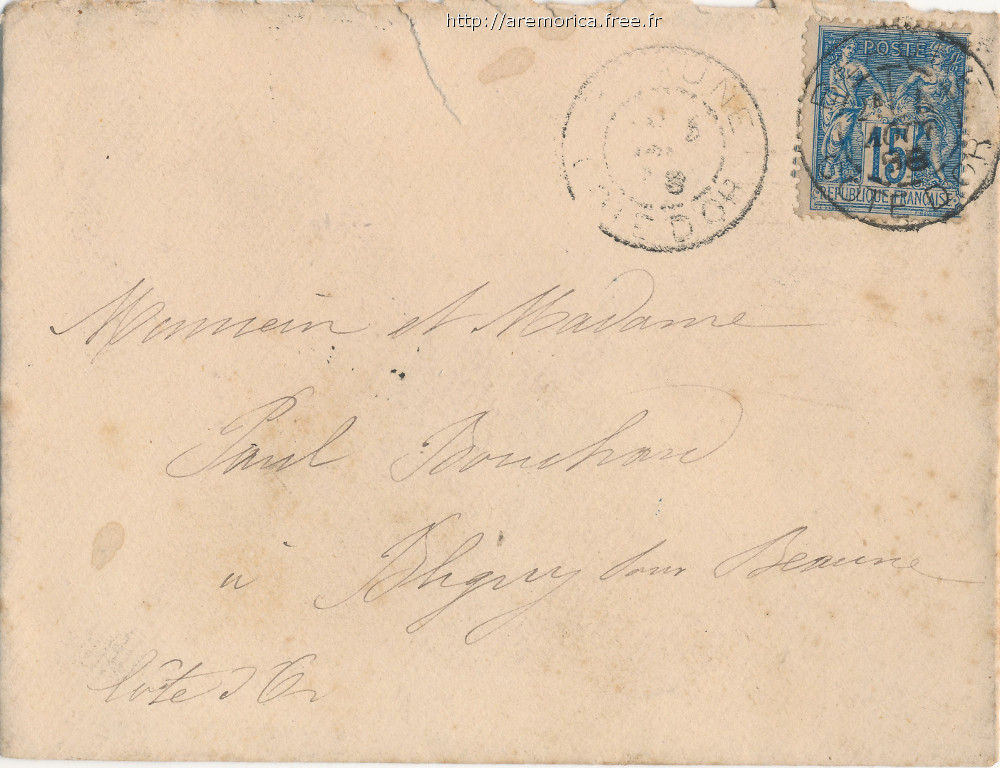 http://aremorica.free.fr
POSTE
15
REPUBLIQUE FRANÇAISE
BEAUNE
COTE D'OR
Monsieur et Madame
Paul Bouchard
à Bligny sous Beaune
Côte d'Or